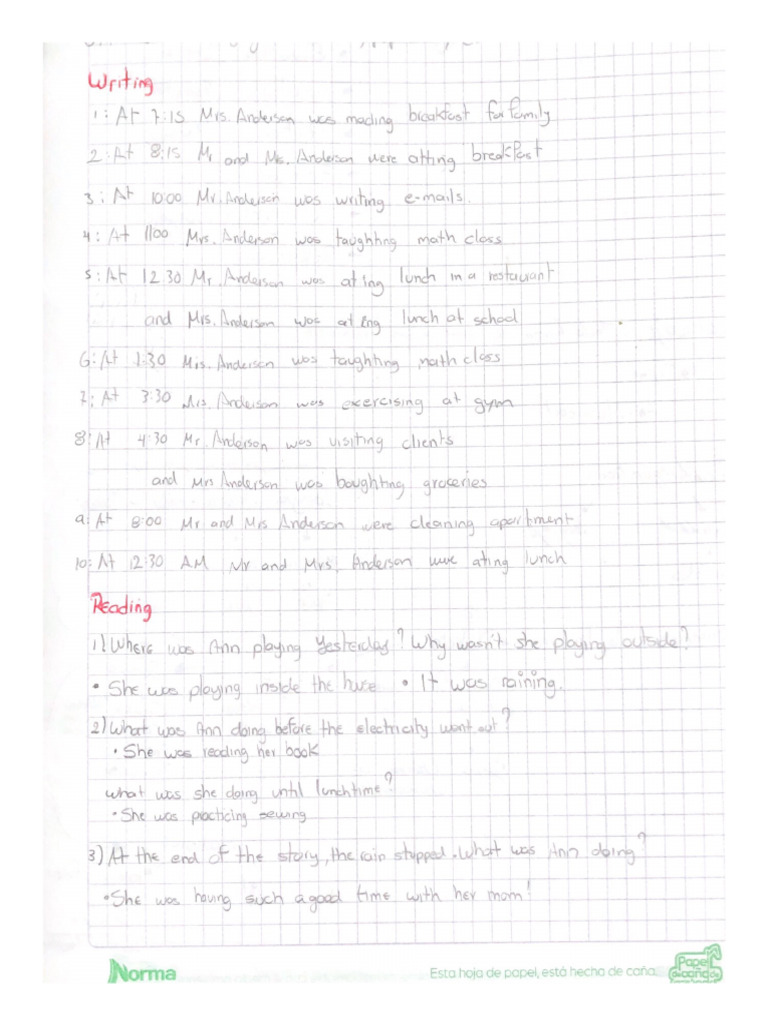 Writing
1: At 7:15 Mrs. Anderson was mading breakfast for family
2: At 8:15 Mr and Ms. Anderson were atting breakfast
3: At 10:00 Mr. Anderson was writing e-mails.
4: At 1100 Mrs. Anderson was taughting math class
5: At 12:30 Mr. Anderson was ating lunch in a restaurant
and Mrs. Anderson was ating lunch at school
6: At 1:30 Mrs. Anderson was taughting math class
7: At 3:30 Mrs. Anderson was exercising at gym
8: At 4:30 Mr. Anderson was visiting clients
and Mrs Anderson was boughting groceries
9: At 8:00 Mr and Mrs Anderson were cleaning apartment
10: At 12:30 AM Mr and Mrs. Anderson were ating lunch
Reading
1) Where was Ann playing Yesterday? Why wasn't she playing outside?
• She was playing inside the huse • It was raining.
2) What was Ann doing before the electricity went out?
• She was reading her book
what was she doing until lunchtime?
• She was practicing sewing
3) At the end of the story, the rain stopped. What was Ann doing?
• She was having such a good time with her mom!
Norma
Esta hoja de papel, está hecha de caña.
Papel de caña de